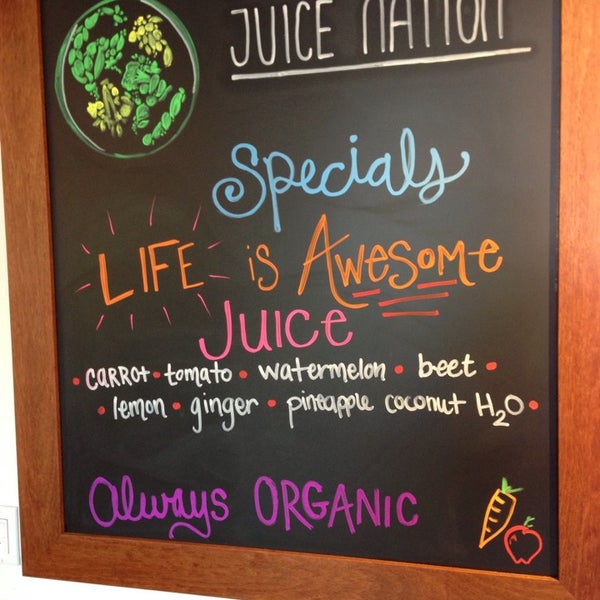 JUICE NATION
Specials
LIFE is AWESOME
JUICE
• CARROT • tomato • watermelon • beet •
• lemon • ginger • pineapple coconut H₂O •
Always ORGANIC